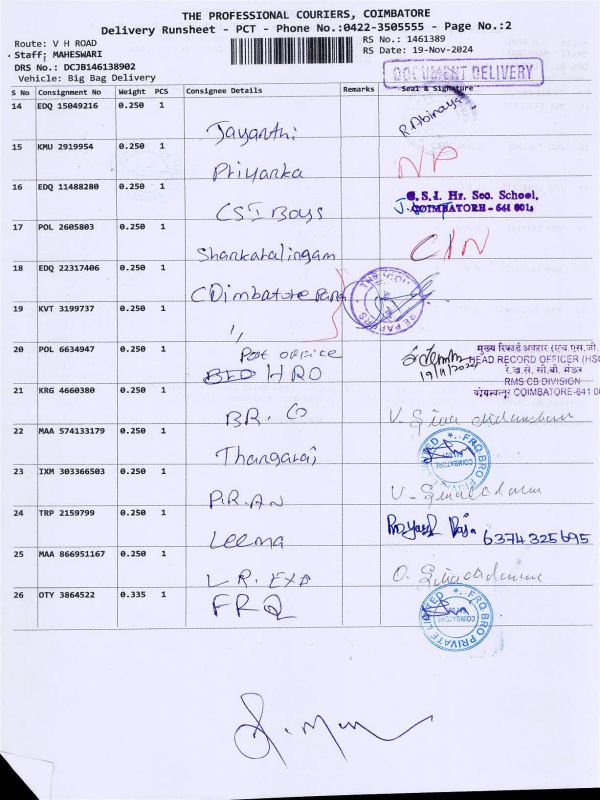 THE PROFESSIONAL COURIERS, COIMBATORE
Delivery Runsheet - PCT - Phone No.:0422-3505555 - Page No.:2
Route: V H ROAD
RS No.: 1461389
Staff: MAHESWARI
RS Date: 19-Nov-2024
DRS No.: DCJB146138902
DOCUMENT DELIVERY
Vehicle: Big Bag Delivery
S No Consignment No Weight PCS Consignee Details Remarks Seal & Signature
14 EDQ 15049216 0.250 1 Jayanthi R.Abinaya
15 KMU 2919954 0.250 1 Priyanka NP
16 EDQ 11488280 0.250 1 CSI Boys
C.S.I. Hr. Sec. School,
COIMBATORE - 641 001.
17 POL 2605803 0.250 1 Shankaralingam
18 EDQ 22317406 0.250 1 Coimbatore
19 KVT 3199737 0.250 1 ,,
20 POL 6634947 0.250 1 Post office
HRO
19/11/2024
HEAD RECORD OFFICER (HSG
RMS CB DIVISION
COIMBATORE-641 00
21 KRG 4660380 0.250 1 BR. O
22 MAA 574133179 0.250 1 Thangaraj
FRQ BRO PRIVATE LIMITED COIMBATORE
23 IXM 303366503 0.250 1
24 TRP 2159799 0.250 1 Leema
6374325695
25 MAA 866951167 0.250 1
26 OTY 3864522 0.335 1 FRQ
FRQ BRO PRIVATE LIMITED COIMBATORE